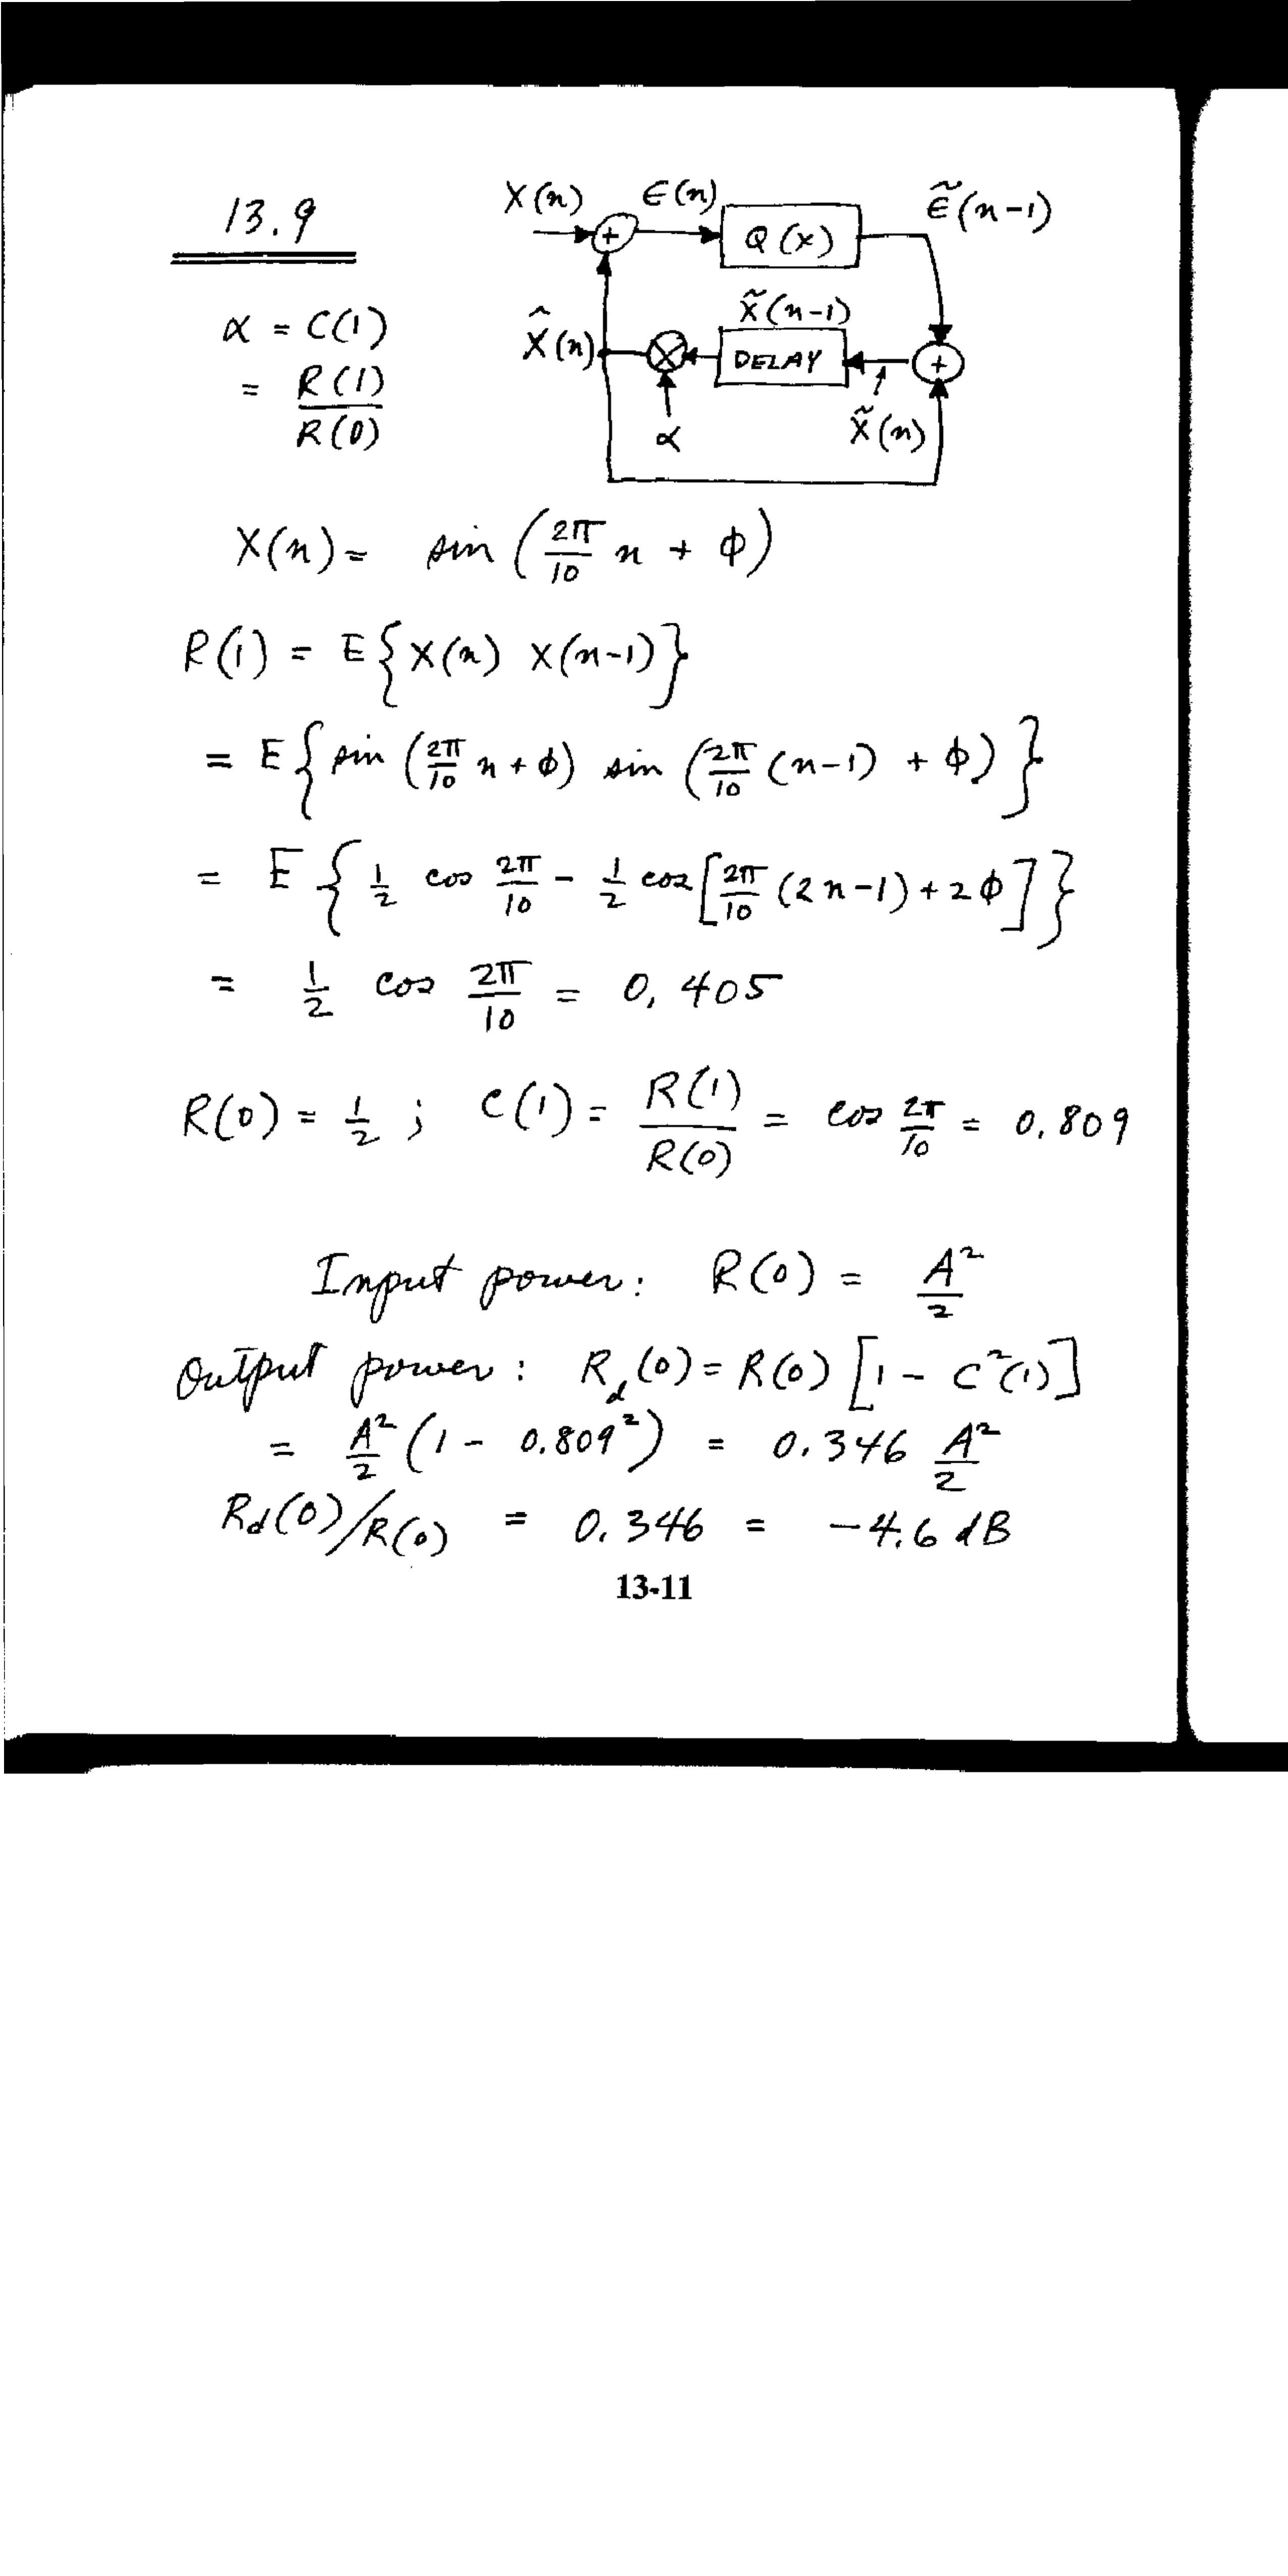 13.9
X(n) ϵ(n) Q(x) ϵ̃(n-1)
α = C(1)
= R(1)/R(0)
X̂(n) X̃(n-1) DELAY
α X̃(n)
X(n) = sin (2π/10 n + ϕ)
R(1) = E{X(n) X(n-1)}
= E{sin (2π/10 n + ϕ) sin (2π/10 (n-1) + ϕ)}
= E{1/2 cos 2π/10 - 1/2 cos[2π/10 (2n-1) + 2ϕ]}
= 1/2 cos 2π/10 = 0,405
R(0) = 1/2 ; C(1) = R(1)/R(0) = cos 2π/10 = 0.809
Input power: R(0) = A²/2
Output power: R_d(0) = R(0) [1 - C²(1)]
= A²/2 (1 - 0.809²) = 0.346 A²/2
R_d(0)/R(0) = 0.346 = -4.6 dB
13-11